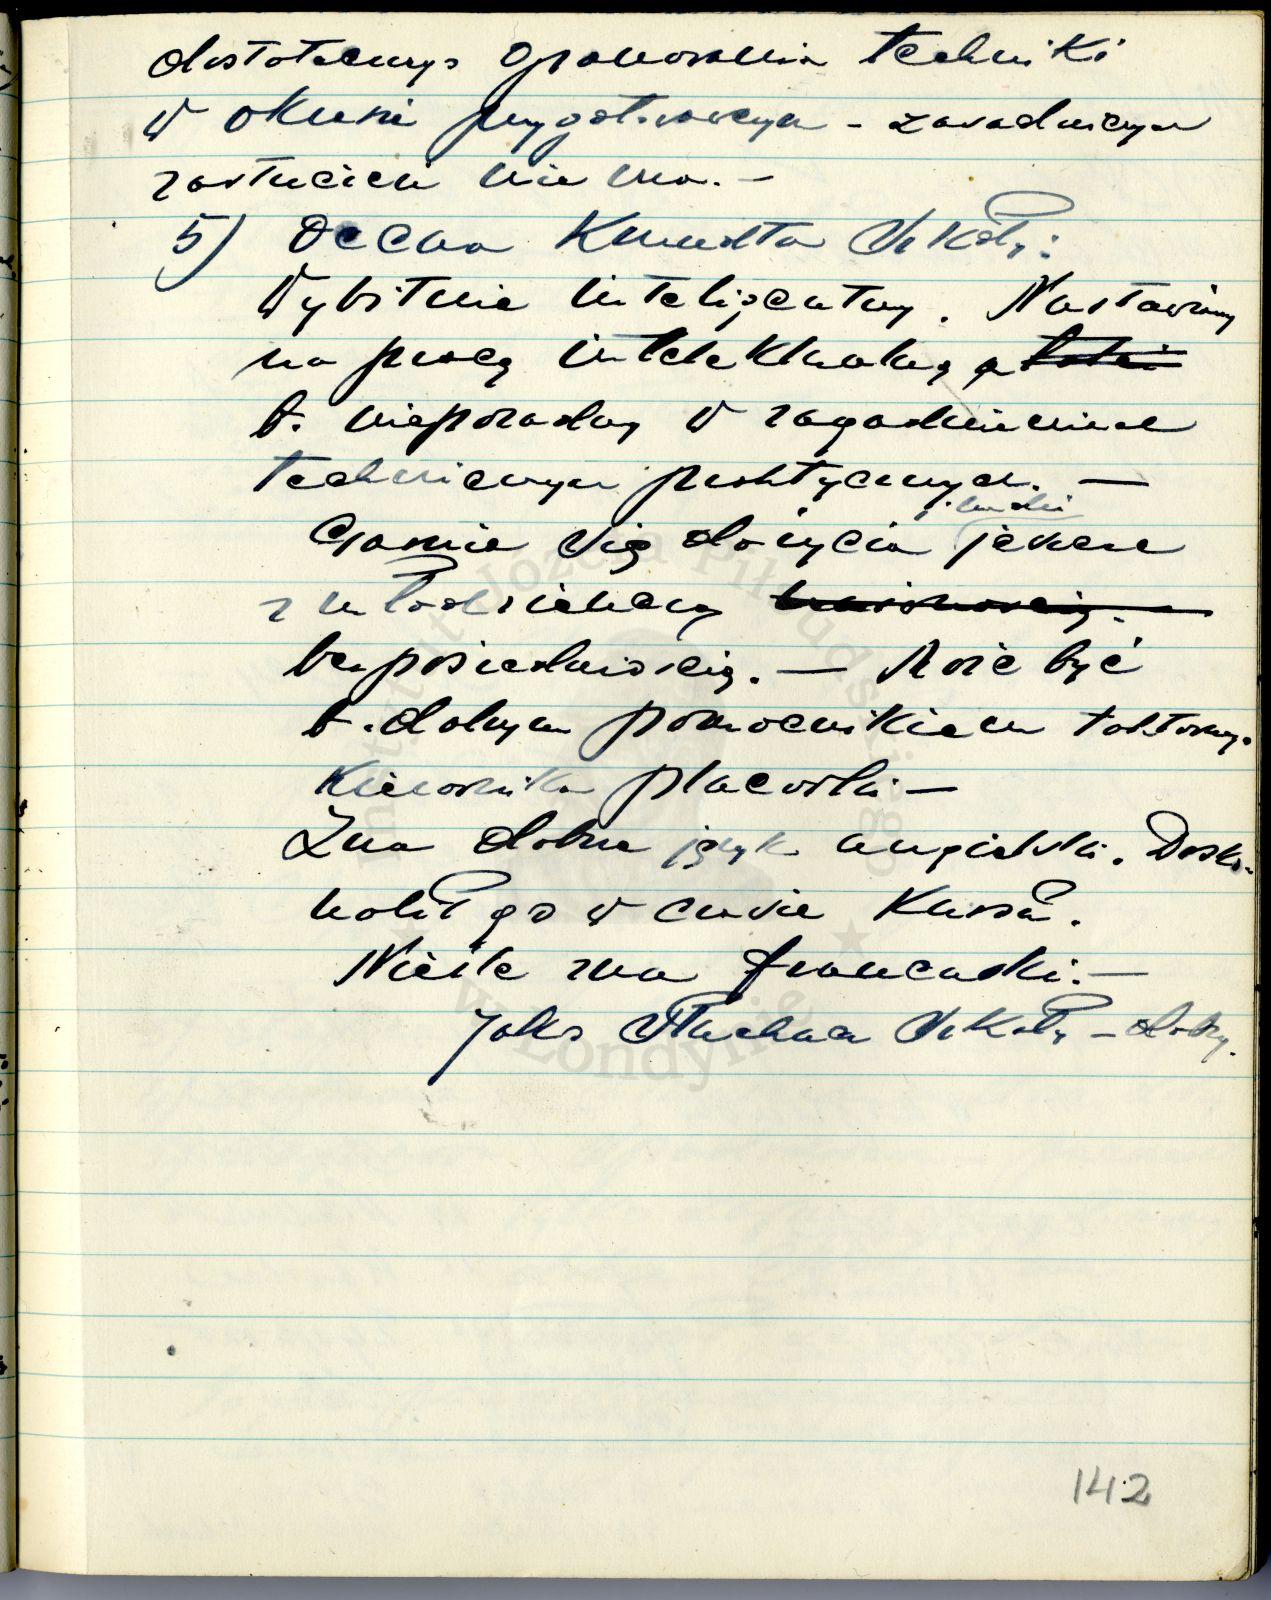 dostatecznego opanowania techniki
w okresie przygotowawczym - zasadniczych
zastrzeżeń nie ma. -
5) Ocena Kmdta Szkoły:
Wybitnie inteligentny. Nastawiony
na pracę intelektualną,
b. nieporadny w zagadnieniach
technicznych praktycznych. —
Garnie się do życia i ludzi jeszcze
z młodzieńczą
bezpośredniością. — Może być
b. dobrym pomocnikiem taktowny.
kierownika placówki —
Zna dobrze język angielski. Dosko-
nalił go w czasie kursu.
Nieźle zna francuski. —
Jako słuchacz Szkoły - dobry.
142
Instytut Józefa Piłsudskiego
w Londynie